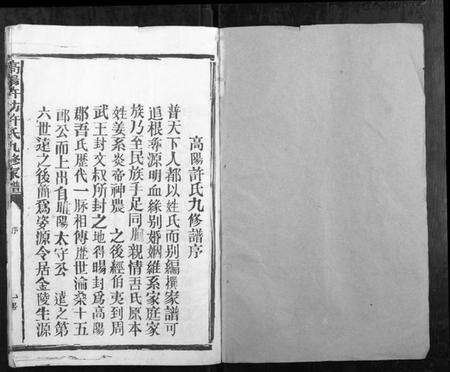 高陽許氏九修譜序
普天下人都以姓氏而别編撰家譜可
追根尋源明血緣别婚姻維系家庭家
族乃至民族手足同胞親情吾氏原本
姓姜系炎帝神農之後經伯夷到周
武王封文叔所封之地得賜封爲高陽
郡吾氏歷代一脉相傳歷世淪桑十五
公而上出自睢陽太守公遠之第
六世遠之後裔爲婺源令居金陵生源
高陽許方許氏九修家譜
序